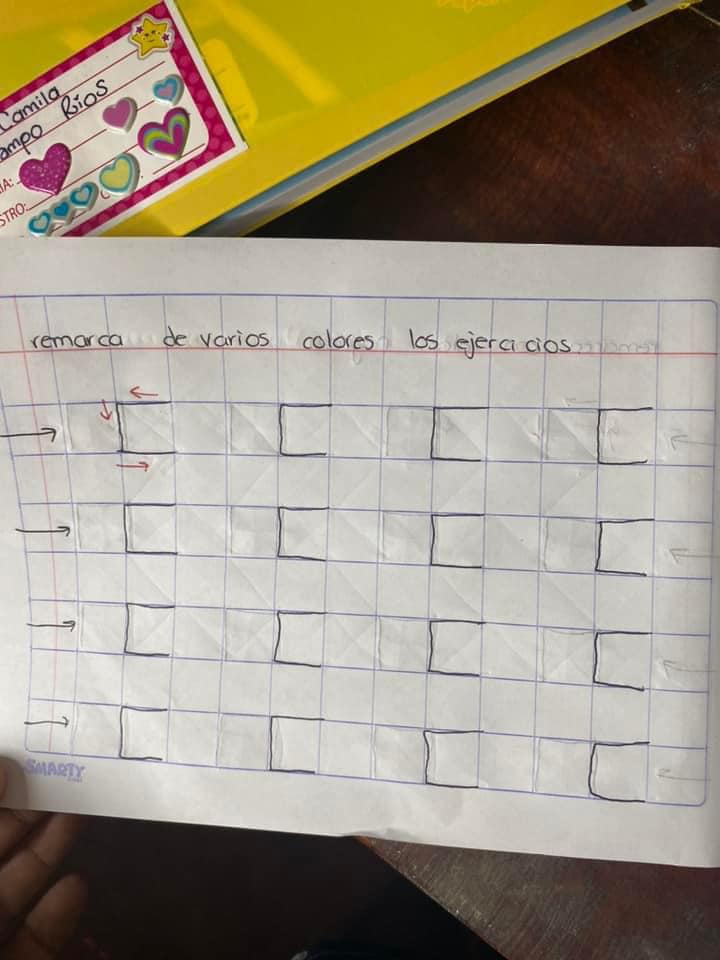 Camila
ampo Rios
IA:
STRO:
remarca de varios colores los ejercicios
SMARTY